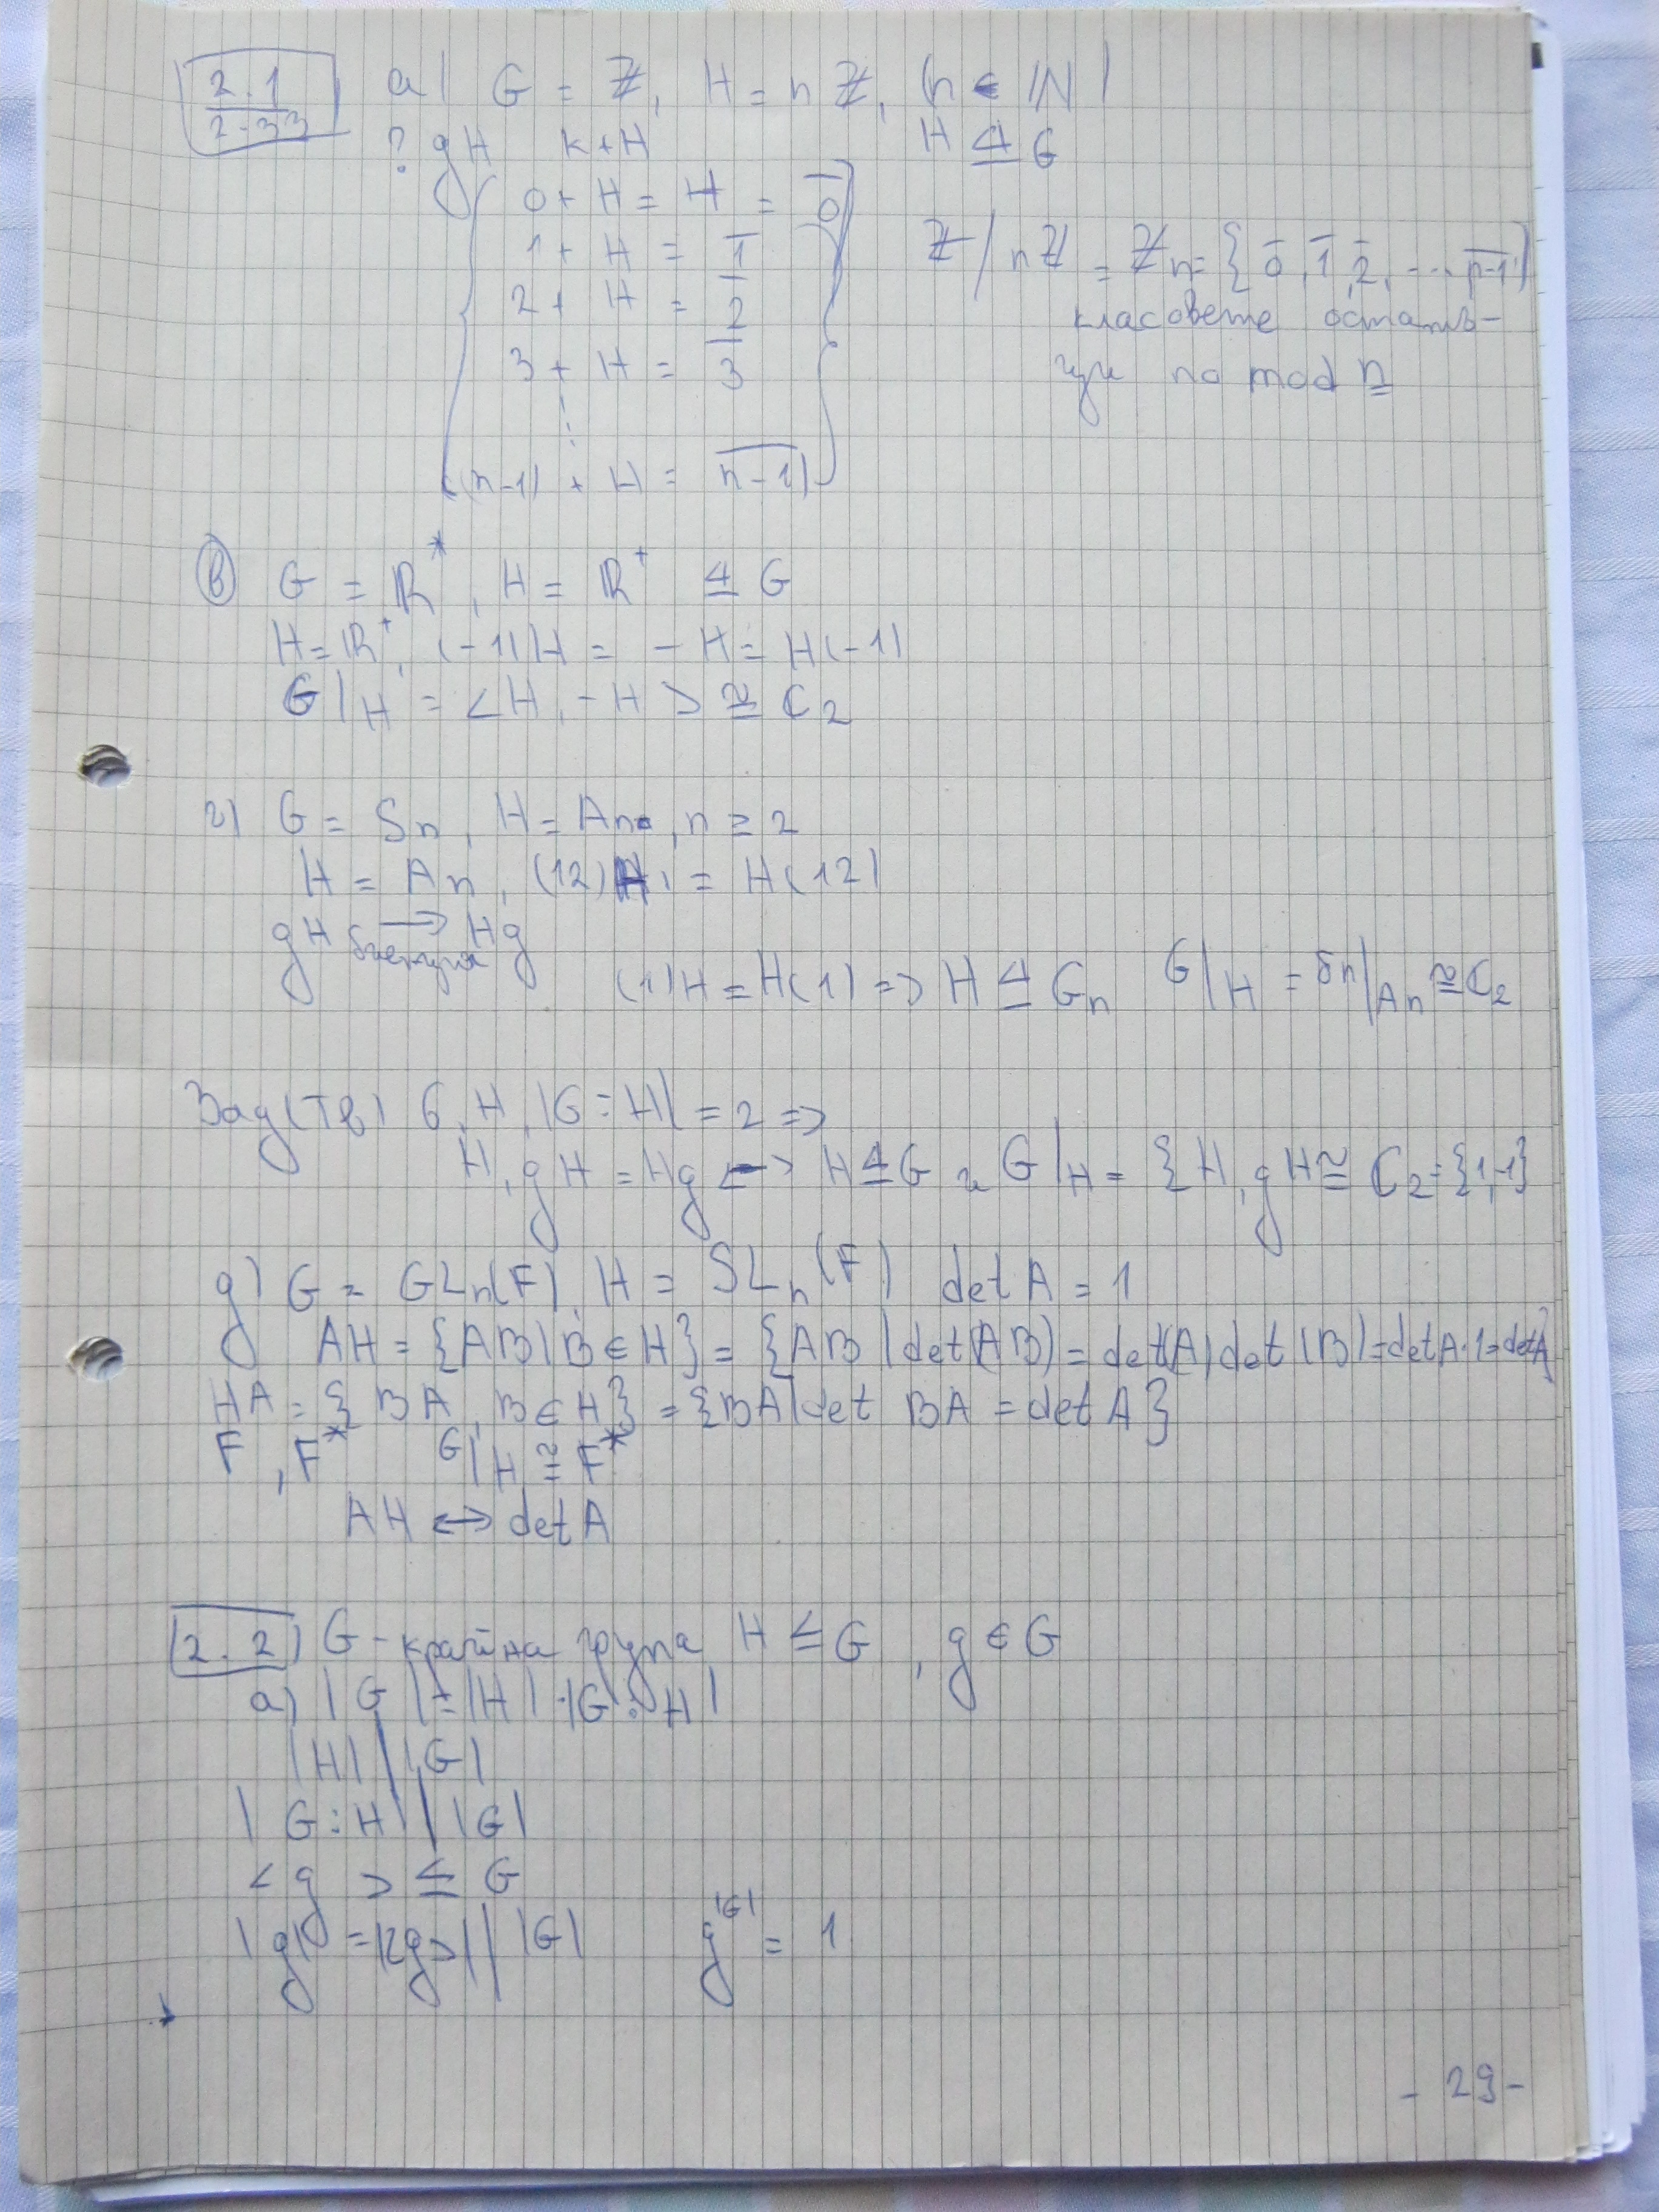 2.1
2-33
а) G = ℤ, H = nℤ, (n ∈ ℕ)
? gH k+H H ⊴ G
0 + H = H = 0̅
1 + H = 1̅
2 + H = 2̅
3 + H = 3̅
⋮
(n-1) + H = n̅-̅1̅
ℤ/nℤ = ℤn = {0̅, 1̅, 2̅, ... n̅-̅1̅}
класовете остатъ-
ци по mod n
в) G = ℝ*, H = ℝ⁺ ⊴ G
H = ℝ⁺, (-1)H = -H = H(-1)
G/H = <H, -H> ≅ C₂
г) G = Sn, H = An, n ≥ 2
H = An, (12)H = H(12)
gH → Hg
биекция
(1)H = H(1) => H ⊴ Gn G/H = Sn/An ≅ C₂
Зад(Тв) G, H, |G:H| = 2 =>
H, gH = Hg <-> H ⊴ G и G/H = {H, gH ≅ C₂ = {1,-1}
д) G = GLn(F), H = SLn(F) det A = 1
AH = {AB | B ∈ H} = {AB | det(AB) = det(A) det(B) = det A·1 = det A}
HA = {BA, B ∈ H} = {BA | det BA = det A}
F, F* G/H ≅ F*
AH ↔ det A
2.2) G - крайна група, H ≤ G, g ∈ G
а) |G| = |H|·|G:H|
|H| / |G|
|G:H| / |G|
<g> ≤ G
|g| = |<g>| / |G| g^|G| = 1
- 29 -